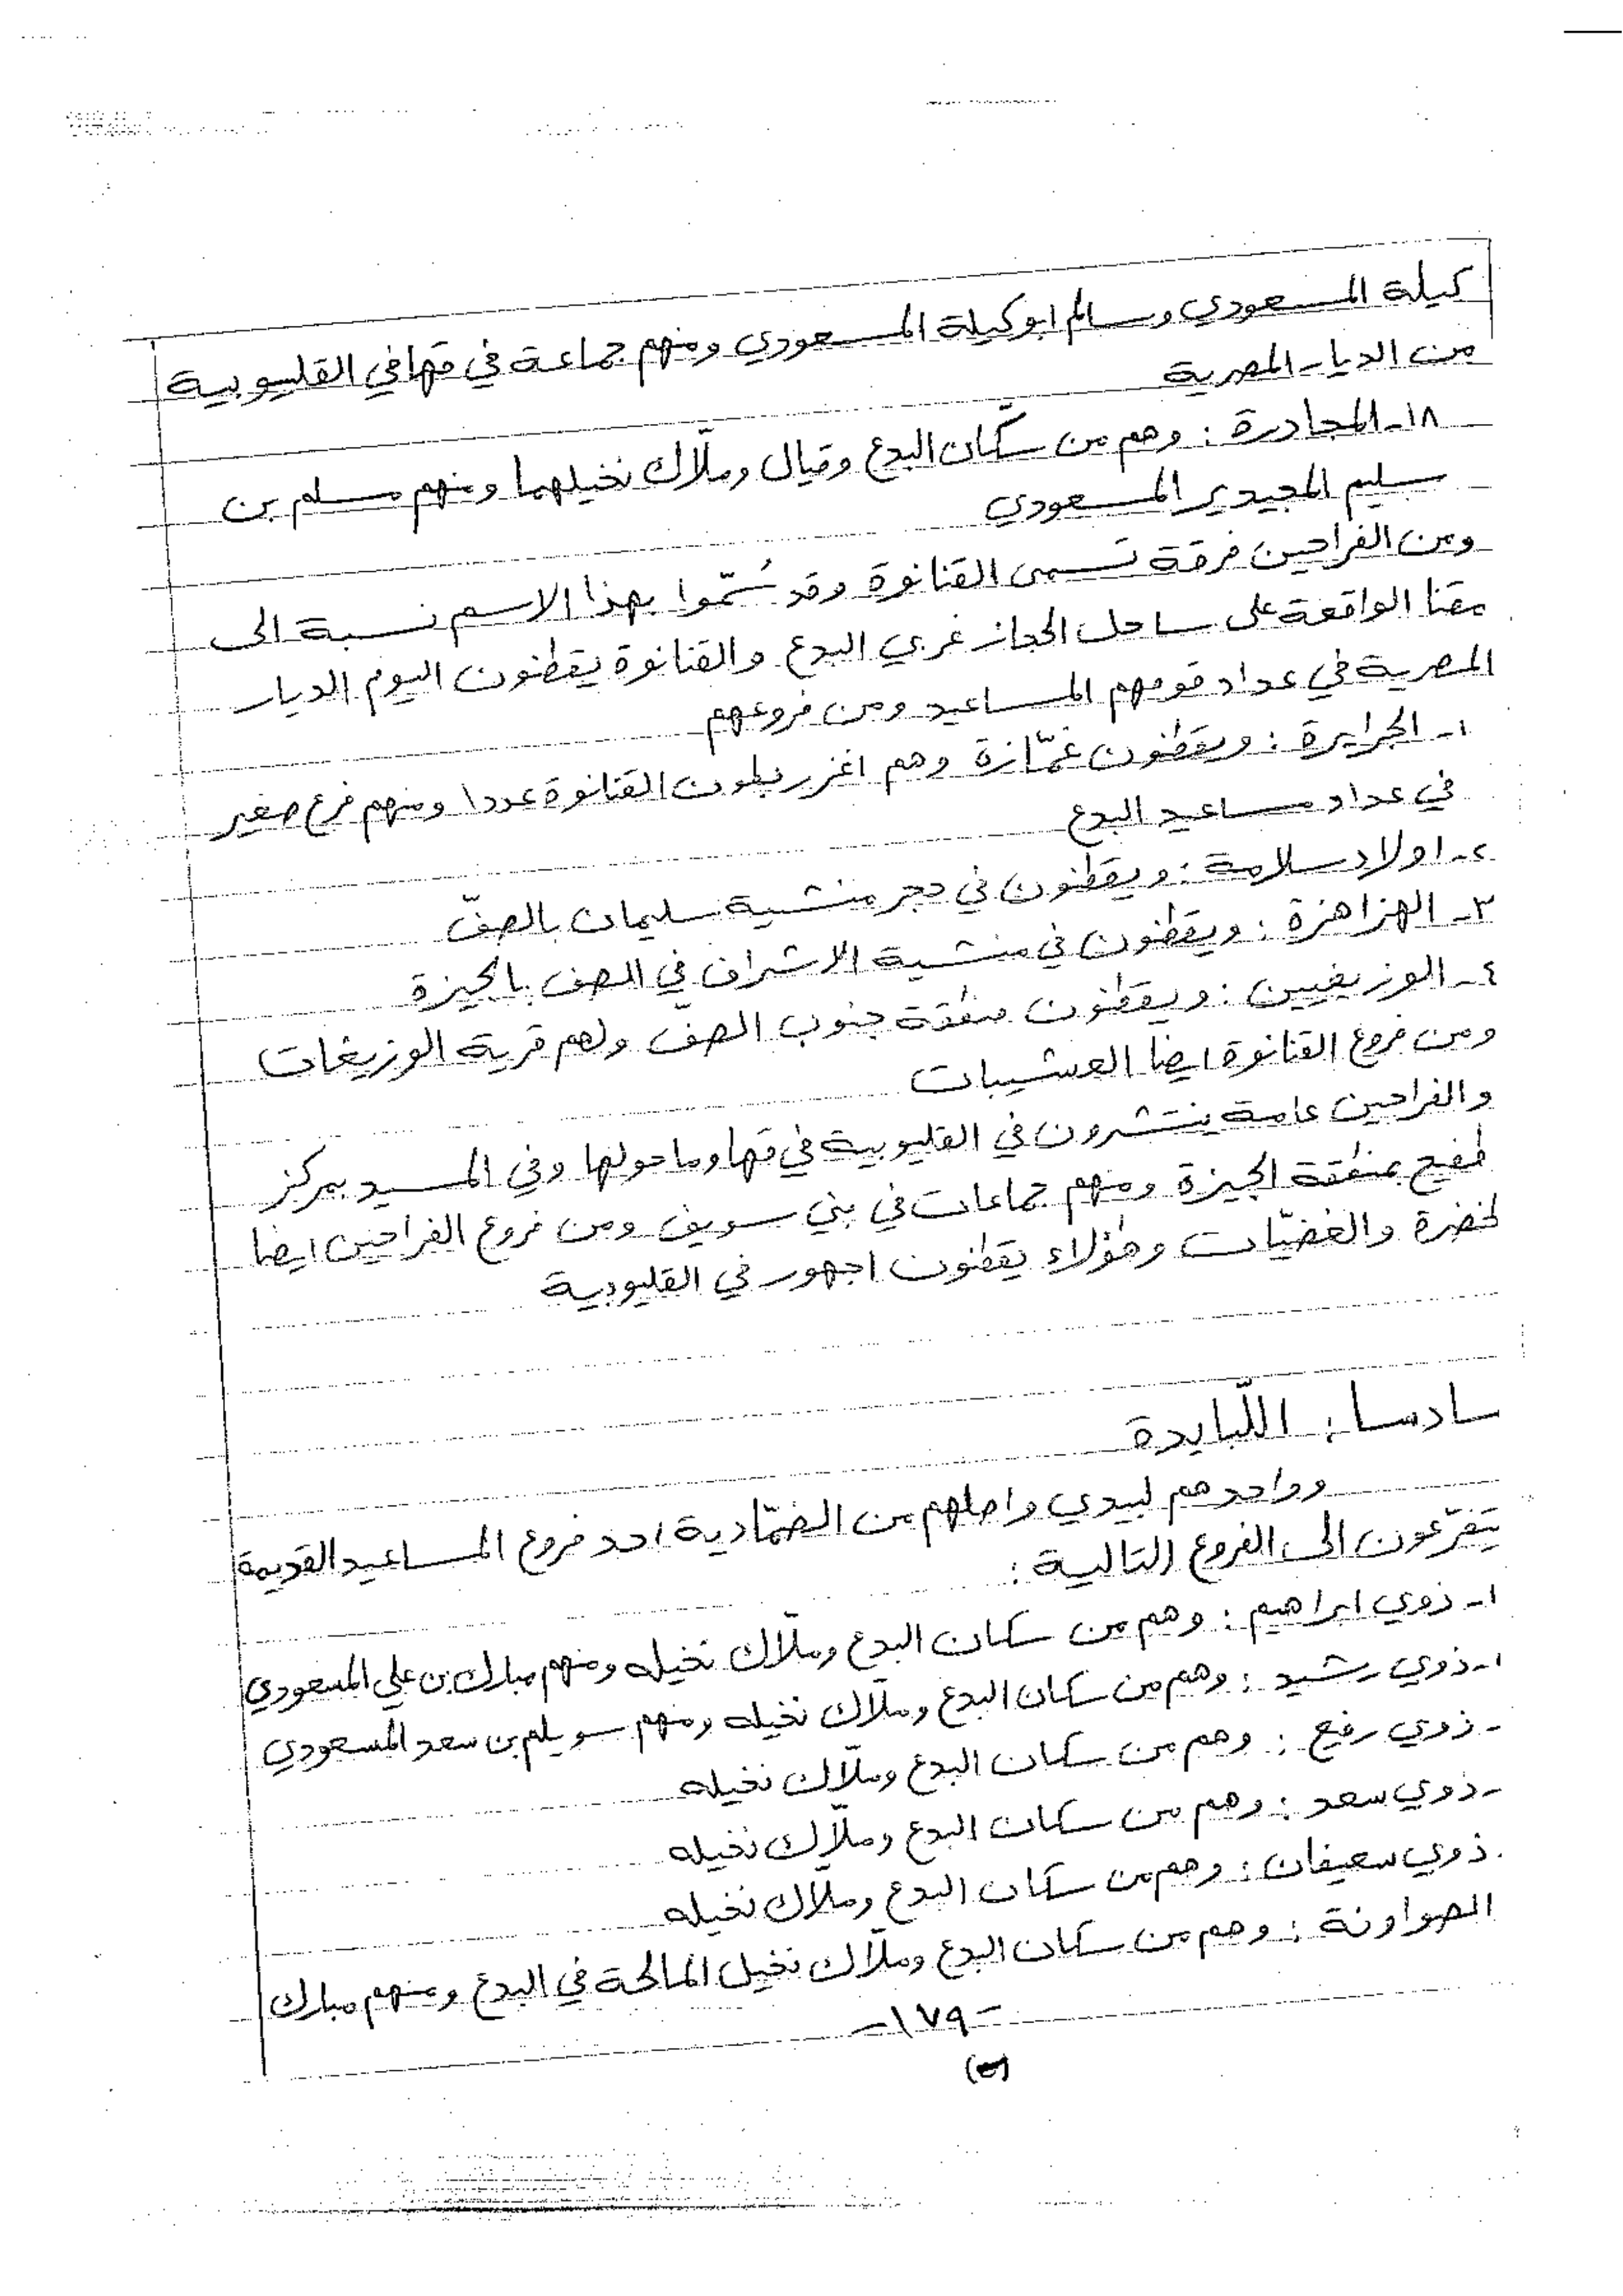 كيلة المسعودي وسالم ابوكيلة المسعودي ومنهم جماعة في قها في القليوبية
من الديار المصرية
١٨- المجادرة : وهم من سكّان البدع وقيال وملّاك نخيلهما ومنهم مسلم بن
سليم المجيدير المسعودي
ومن الفراحين فرقة تسمى القنانوة وقد سُمّوا بهذا الاسم نسبة الى
مقنا الواقعة على ساحل الحجاز غربي البدع والقنانوة يقطنون اليوم الديار
المصرية في عداد قومهم المساعيد ومن فروعهم
١- الجرايرة : ويقطنون غمّازة وهم اغزر بطون القنانوة عددا ومنهم فرع صغير
في عداد مساعيد البدع
٢- اولاد سلامة : ويقطنون في حجر منشية سليمان بالصفّ
٣- الهزاهزة : ويقطنون في منشية الاشراف في الصف بالجيزة
٤- الوزيغيين : ويقطنون منطقة جنوب الصفّ ولهم قرية الوزيغات
ومن فروع القنانوة ايضا العشيبات
والفراحين عامة ينتشرون في القليوبية في قها وما حولها وفي المسيد بمركز
طفيح بمنطقة الجيزة ومنهم جماعات في بني سويف ومن فروع الفراحين ايضا
لخضرة والغضيّات وهؤلاء يقطنون اجهور في القليوبية
سادسا : اللّبايدة
وواحدهم لبيدي واصلهم من الضمّادية احد فروع المساعيد القديمة
يتفرّعون الى الفروع التالية :
١- ذوي ابراهيم : وهم من سكان البدع وملّاك نخيله ومنهم مبارك بن علي المسعودي
١- ذوي رشيد : وهم من سكان البدع وملّاك نخيله ومنهم سويلم بن سعد المسعودي
- ذوي رفيع : وهم من سكان البدع وملّاك نخيله
- ذوي سعد : وهم من سكان البدع وملّاك نخيله
. ذوي سعيفان : وهم من سكان البدع وملّاك نخيله
الصواونة : وهم من سكان البدع وملّاك نخيل المالحة في البدع ومنهم مبارك
-١٧٩-